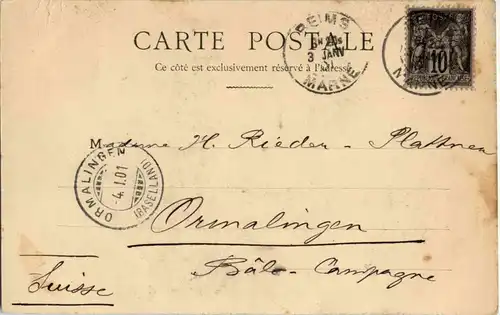 CARTE POSTALE
Ce côté est exclusivement réservé à l'adresse
REIMS
3 JANV
MARNE
10
MARNE
Madame H. Rieder - Plattner
ORMALINGEN
-4.I.01
(BASELLAND)
Ormalingen
Bâle - Campagne
Suisse